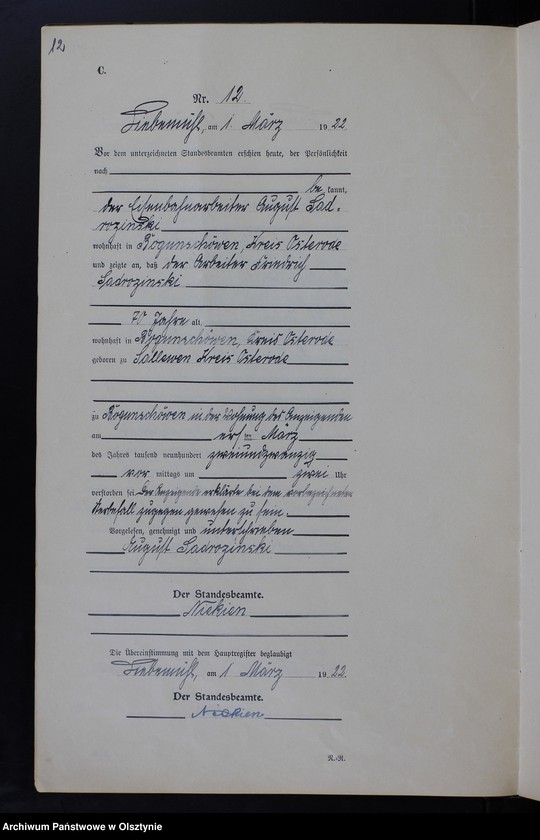 12
C.
Nr. 12.
Liebemühl, am 1. März 1922
Vor dem unterzeichneten Standesbeamten erschien heute, der Persönlichkeit
nach
be kannt,
der Eisenbahnarbeiter August Sad-
rozinski
wohnhaft in Bogunschöwen, Kreis Osterode
und zeigte an, daß der Arbeiter Friedrich
Sadrozinski
70 Jahre alt,
wohnhaft in Bogunschöwen, Kreis Osterode
geboren zu Sallewen Kreis Osterode
zu Bogunschöwen in der Wohnung des Anzeigenden
am ersten März
des Jahres tausend neunhundert zweiundzwanzig
vor mittags um zwei Uhr
verstorben sei. Der Anzeigende erklärte bei dem vorbezeichneten
Sterbefall zugegen gewesen zu sein.
Vorgelesen, genehmigt und unterschrieben
August Sadrozinski
Der Standesbeamte.
Niekien
Die Übereinstimmung mit dem Hauptregister beglaubigt
Liebemühl, am 1 März 1922
Der Standesbeamte.
Niekien
R.-R.
Archiwum Państwowe w Olsztynie